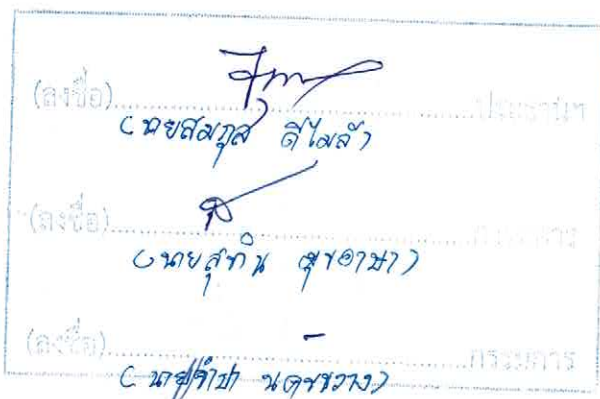 (ลงชื่อ)..................................ประธานฯ
(นายสมกุล ดีไมล์)
(ลงชื่อ)..................................กรรมการ
(นายสุทิน สุขอาษา)
(ลงชื่อ)..................................กรรมการ
(นาย